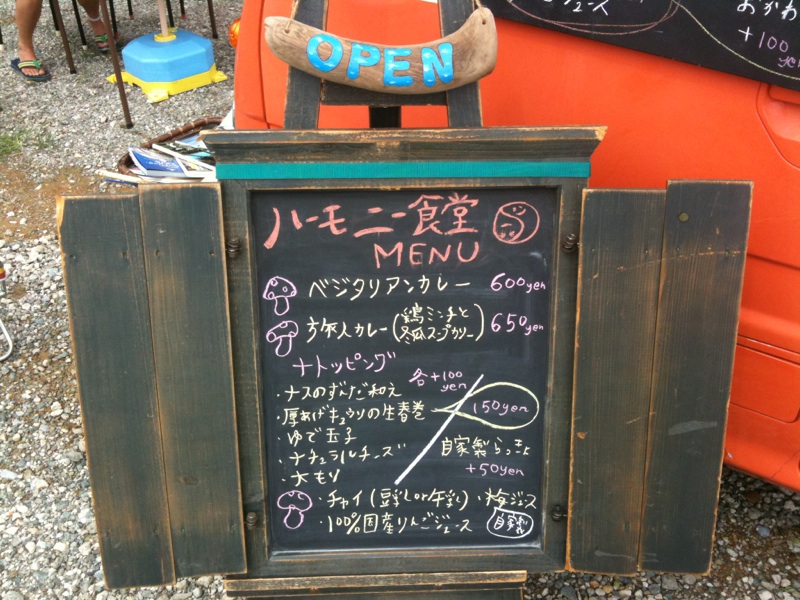 OPEN
ュース
おかわ
+100
yen
ハーモニー食堂
MENU
ベジタリアンカレー 600yen
旅人カレー (鶏ミンチと冬瓜スープカリー) 650yen
+トッピング
各+100
yen
・ナスのずんだ和え
・厚あげキュウリの生春巻 150yen
・ゆで玉子
・ナチュラルチーズ
・大もり
自家製らっきょ
+50yen
・チャイ(豆乳or牛乳) ・梅ジュース
自家製
・100%国産りんごジュース